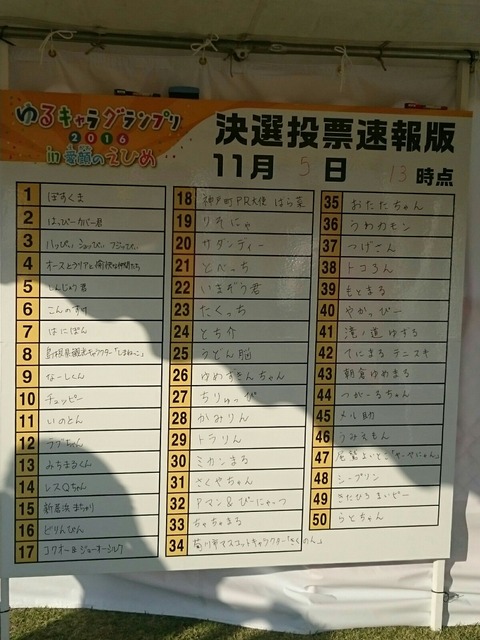 ゆるキャラグランプリ
2016
in 愛顔のえひめ
決選投票速報版
11月 5 日 13 時点
1 ぼすくま
2 はっぴーカバー君
3 ハッぴぃ ショッぴぃ フジッぴぃ
4 オーストラリアと愉快な仲間たち
5 しんじょう君
6 こんのすけ
7 はにぽん
8 島根県観光キャラクター「しまねっこ」
9 なーしくん
10 チュッピー
11 いのとん
12 ラブちゃん
13 みちまるくん
14 レスQちゃん
15 新居浜 まちゅり
16 ピりんぴん
17 コクオー&ジョーオーシルク
18 神戸町PR大使 ばら菜
19 りそにゃ
20 サダンディー
21 とべっち
22 いまぞう君
23 たくっち
24 とち介
25 うどん脳
26 ゆめずきんちゃん
27 ちりゅっぴ
28 かみりん
29 トラりん
30 ミカンまる
31 さくやちゃん
32 Pマン&ぴーにゃっつ
33 ちゃちゃまる
34 菊川市マスコットキャラクター「きくのん」
35 おたたちゃん
36 うわカモン
37 つげさん
38 トコろん
39 もとまる
40 やかっぴー
41 滝ノ道ゆずる
42 すだちくん
43 朝倉ゆめまる
44 つがーるちゃん
45 メル助
46 うみえもん
47 尾鷲よいとこ「ヤーヤにゃん」
48 シーブリン
49 きたひろ まいピー
50 らとちゃん